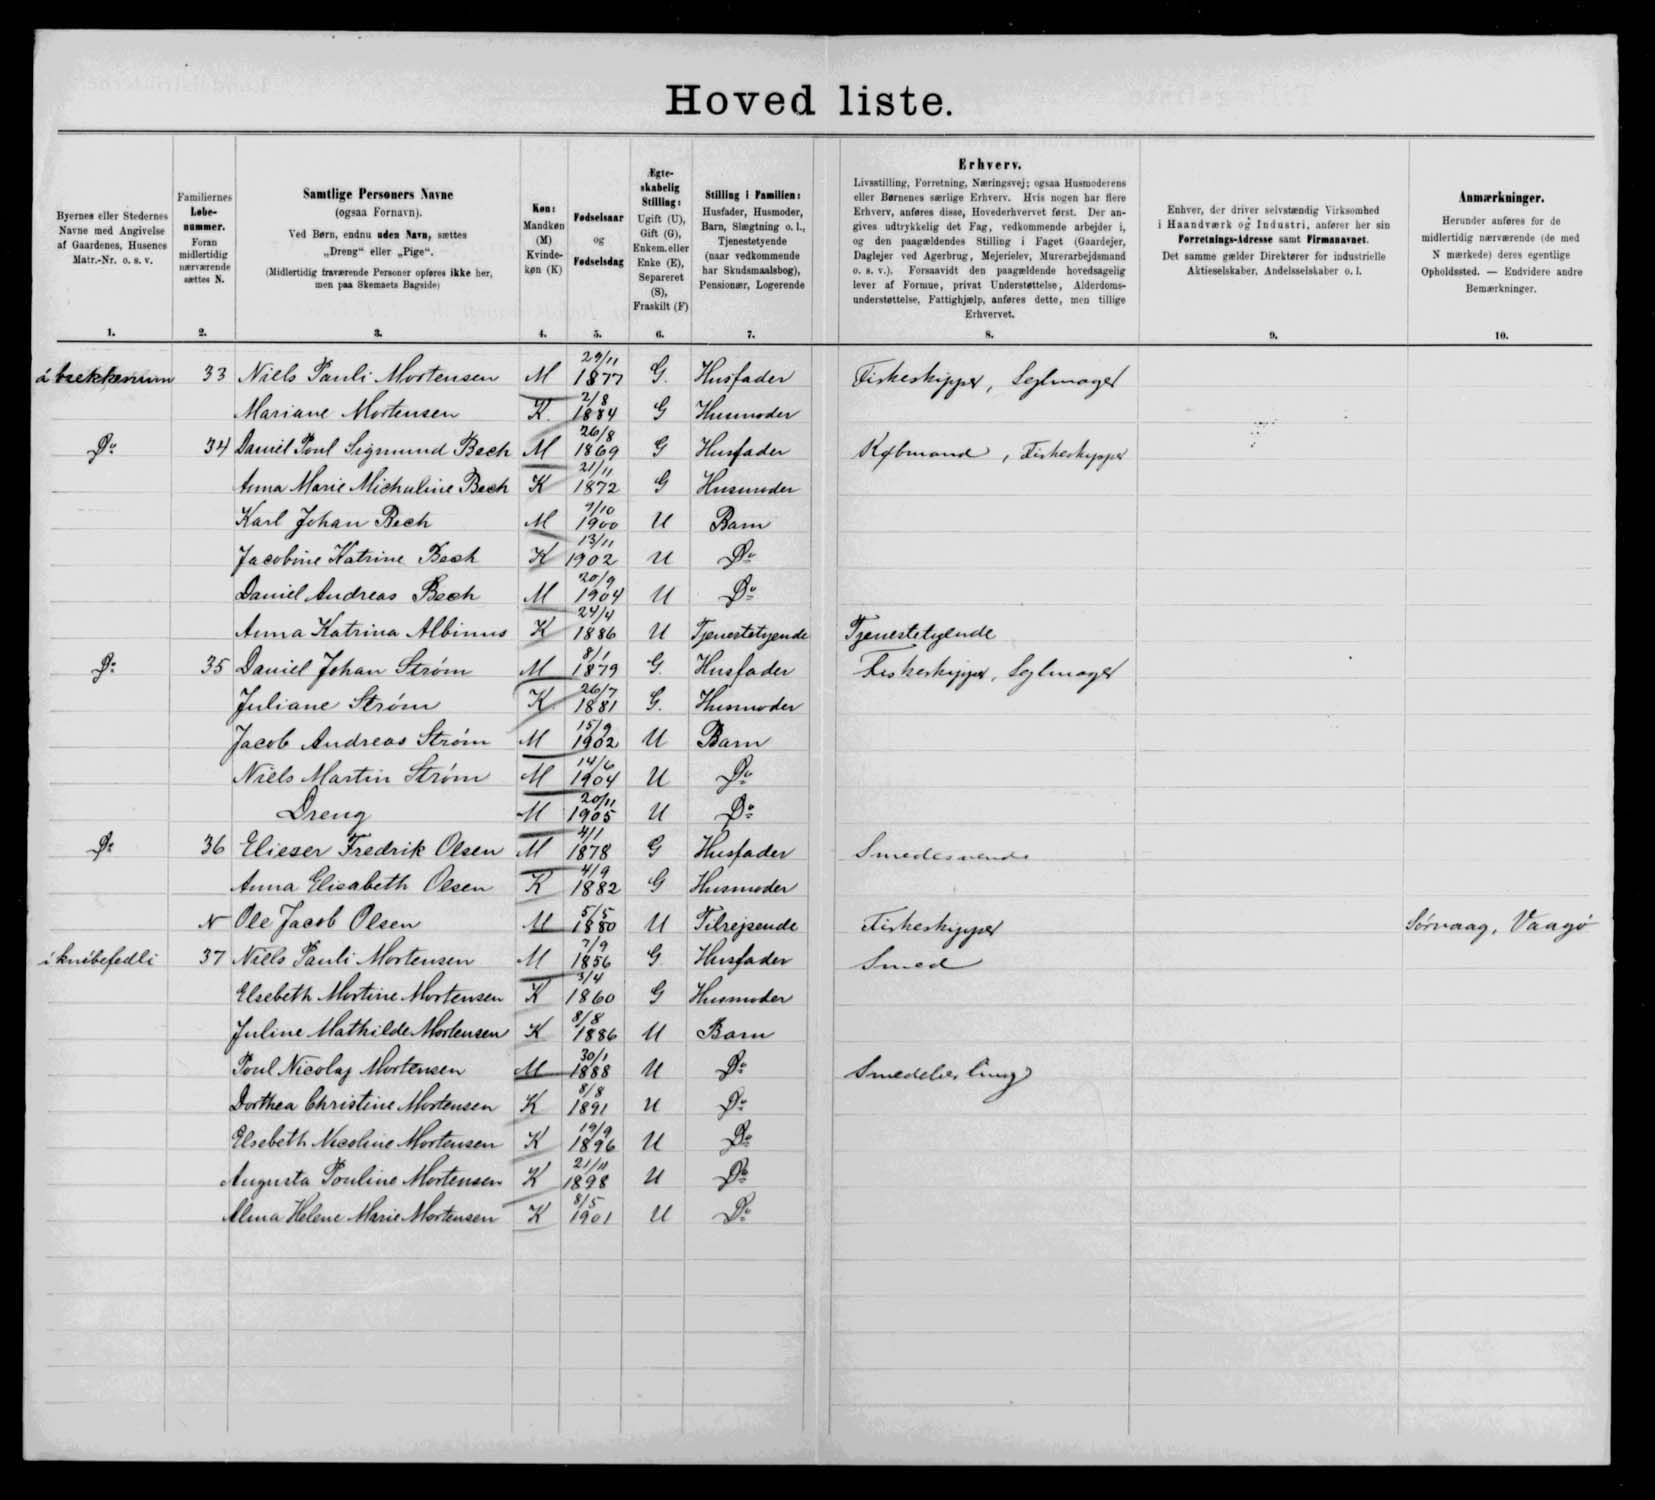 Hoved liste.
Byernes eller Stedernes Navne med Angivelse af Gaardenes, Husenes Matr.-Nr. o. s. v.
Familiernes Løbenummer. Foran midlertidig nærværende sættes N.
Samtlige Personers Navne (ogsaa Fornavn). Ved Børn, endnu uden Navn, sættes „Dreng“ eller „Pige“. (Midlertidig fraværende Personer opføres ikke her, men paa Skemaets Bagside)
Køn: Mandkøn (M) Kvindekøn (K)
Fødselsaar og Fødselsdag
Ægteskabelig Stilling: Ugift (U), Gift (G), Enkem. eller Enke (E), Separeret (S), Fraskilt (F)
Stilling i Familien: Husfader, Husmoder, Barn, Slægtning o. l., Tjenestetyende (naar vedkommende har Skudsmaalsbog), Pensionær, Logerende
Erhverv. Livsstilling, Forretning, Næringsvej; ogsaa Husmoderens eller Børnenes særlige Erhverv. Hvis nogen har flere Erhverv, anføres disse, Hovederhvervet først. Der angives udtrykkelig det Fag, vedkommende arbejder i, og den paagældendes Stilling i Faget (Gaardejer, Daglejer ved Agerbrug, Mejerielev, Murerarbejdsmand o. s. v.). Forsaavidt den paagældende hovedsagelig lever af Formue, privat Understøttelse, Alderdomsunderstøttelse, Fattighjælp, anføres dette, men tillige Erhvervet.
Enhver, der driver selvstændig Virksomhed i Haandværk og Industri, anfører her sin Forretnings-Adresse samt Firmanavnet. Det samme gælder Direktører for industrielle Aktieselskaber, Andelsselskaber o. l.
Anmærkninger. Herunder anføres for de midlertidig nærværende (de med N mærkede) deres egentlige Opholdssted. — Endvidere andre Bemærkninger.
1. 2. 3. 4. 5. 6. 7. 8. 9. 10.
á brekkenum 33 Niels Pauli Mortensen M 29/11 1877 G. Husfader Fiskeskipper, Sejlmager
Mariane Mortensen K. 2/8 1884 G Husmoder
Do 34 Daniel Poul Sigmund Bech M 26/8 1869 G Husfader Købmand, Fiskeskipper
Anna Marie Michuline Bech K 21/11 1872 G Husmoder
Karl Johan Bech M 7/10 1900 U Barn
Jacobine Katrine Bech K 13/11 1902 U Do
Daniel Andreas Bech M 20/9 1904 U Do
Anna Katrina Albinus K 24/4 1886 U Tjenestetyende Tjenestetyende
Do 35 Daniel Johan Strøm M 8/1 1879 G. Husfader Fiskeskipper, Sejlmager
Juliane Strøm K. 26/7 1881 G. Husmoder
Jacob Andreas Strøm M 15/9 1902 U Barn
Niels Martin Strøm M 14/6 1904 U Do
Dreng M 20/11 1905 U Do
Do 36 Elieser Fredrik Olsen M 4/1 1878 G Husfader Smedesvend
Anna Elisabeth Olsen K 4/9 1882 G Husmoder
N Ole Jacob Olsen M 5/5 1880 U Tilrejsende Fiskeskipper Sørvaag, Vaagø
i knibefedli 37 Niels Pauli Mortensen M 7/9 1856 G. Husfader Smed
Elsebeth Mortine Mortensen K 3/4 1860 G Husmoder
Juline Mathilde Mortensen K 8/8 1886 U Barn
Poul Nicolaj Mortensen M 30/1 1888 U Do Smedelærling
Dorthea Christine Mortensen K 8/8 1891 U Do
Elsebeth Nicoline Mortensen K 19/9 1896 U Do
Augusta Pouline Mortensen K 21/11 1898 U Do
Alma Helene Marie Mortensen K 8/5 1901 U Do